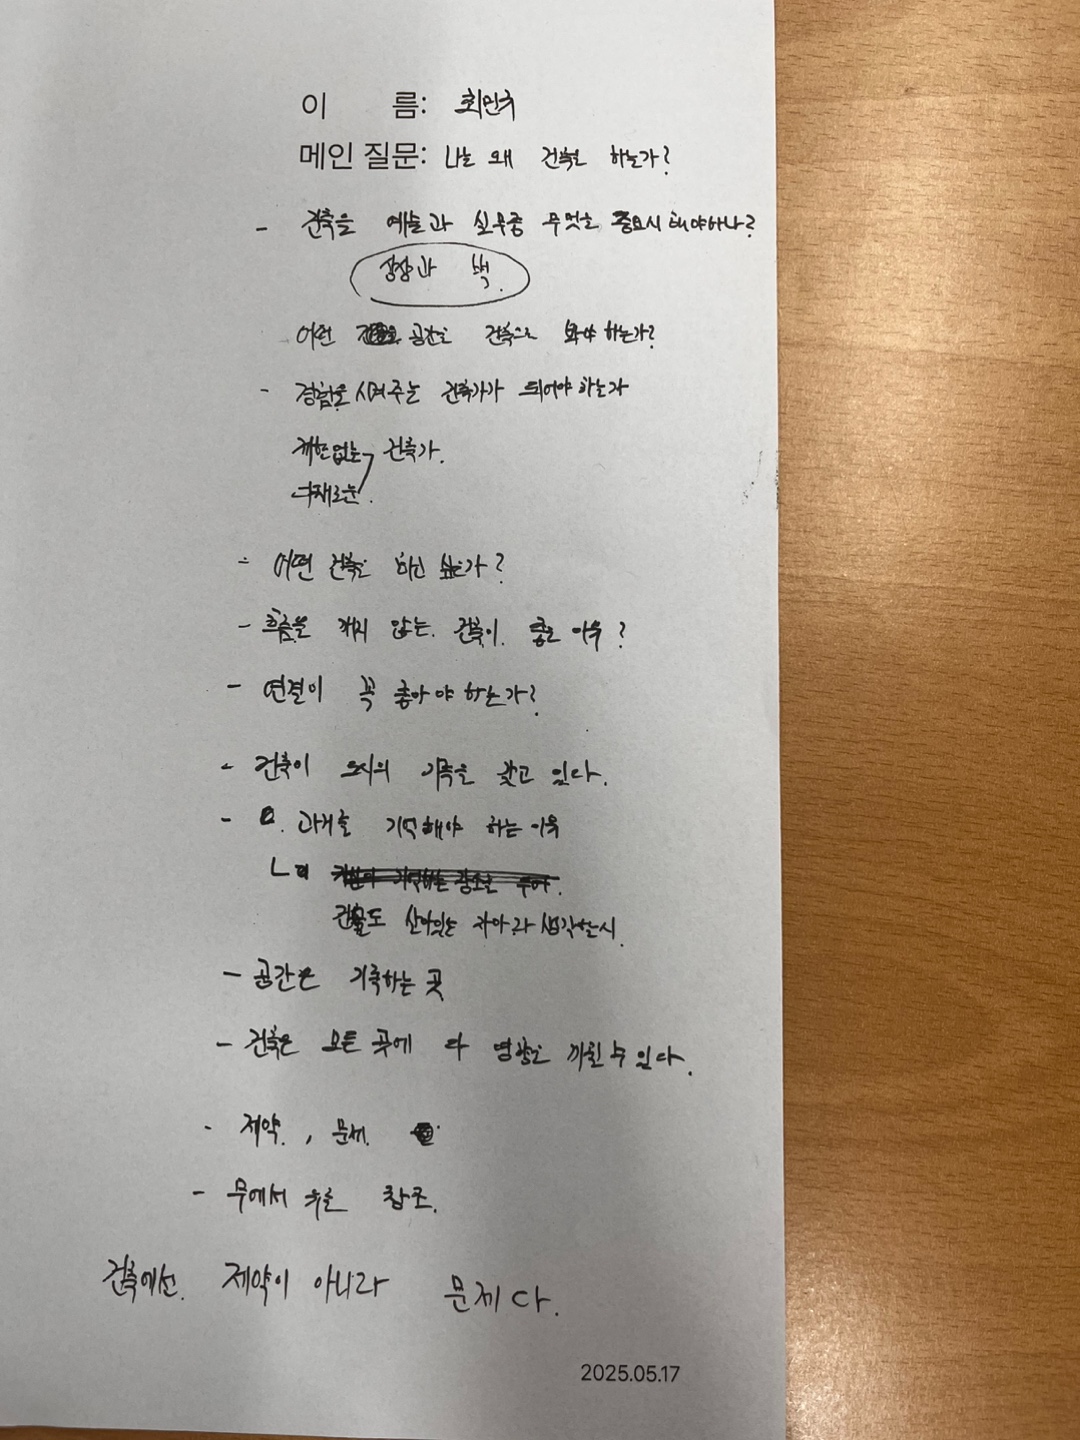 이 름: 최민수
메인 질문: 나는 왜 건축을 하는가?
- 건축을 예술과 실무중 무엇을 중요시 해야하나?
상상과 벽.
어떤 공간을 건축으로 봐야 하는가?
- 경험을 시켜주는 건축가가 되어야 하는가
제한없는 건축가.
다채로운.
- 어떤 건축을 하고 싶은가?
- 흐름을 깨지 않는. 건축이. 좋은 이유?
- 연결이 꼭 좋아야 하는가?
- 건축이 도시의 기록을 갖고 있다.
- 과거를 기억해야 하는 이유
건물도 살아있는 자아라 생각할시.
- 공간은 기록하는 곳
- 건축은 모든 곳에 다 영향을 끼칠 수 있다.
- 제약. , 문제.
- 무에서 유를 창조.
건축에선. 제약이 아니라 문제다.
2025.05.17